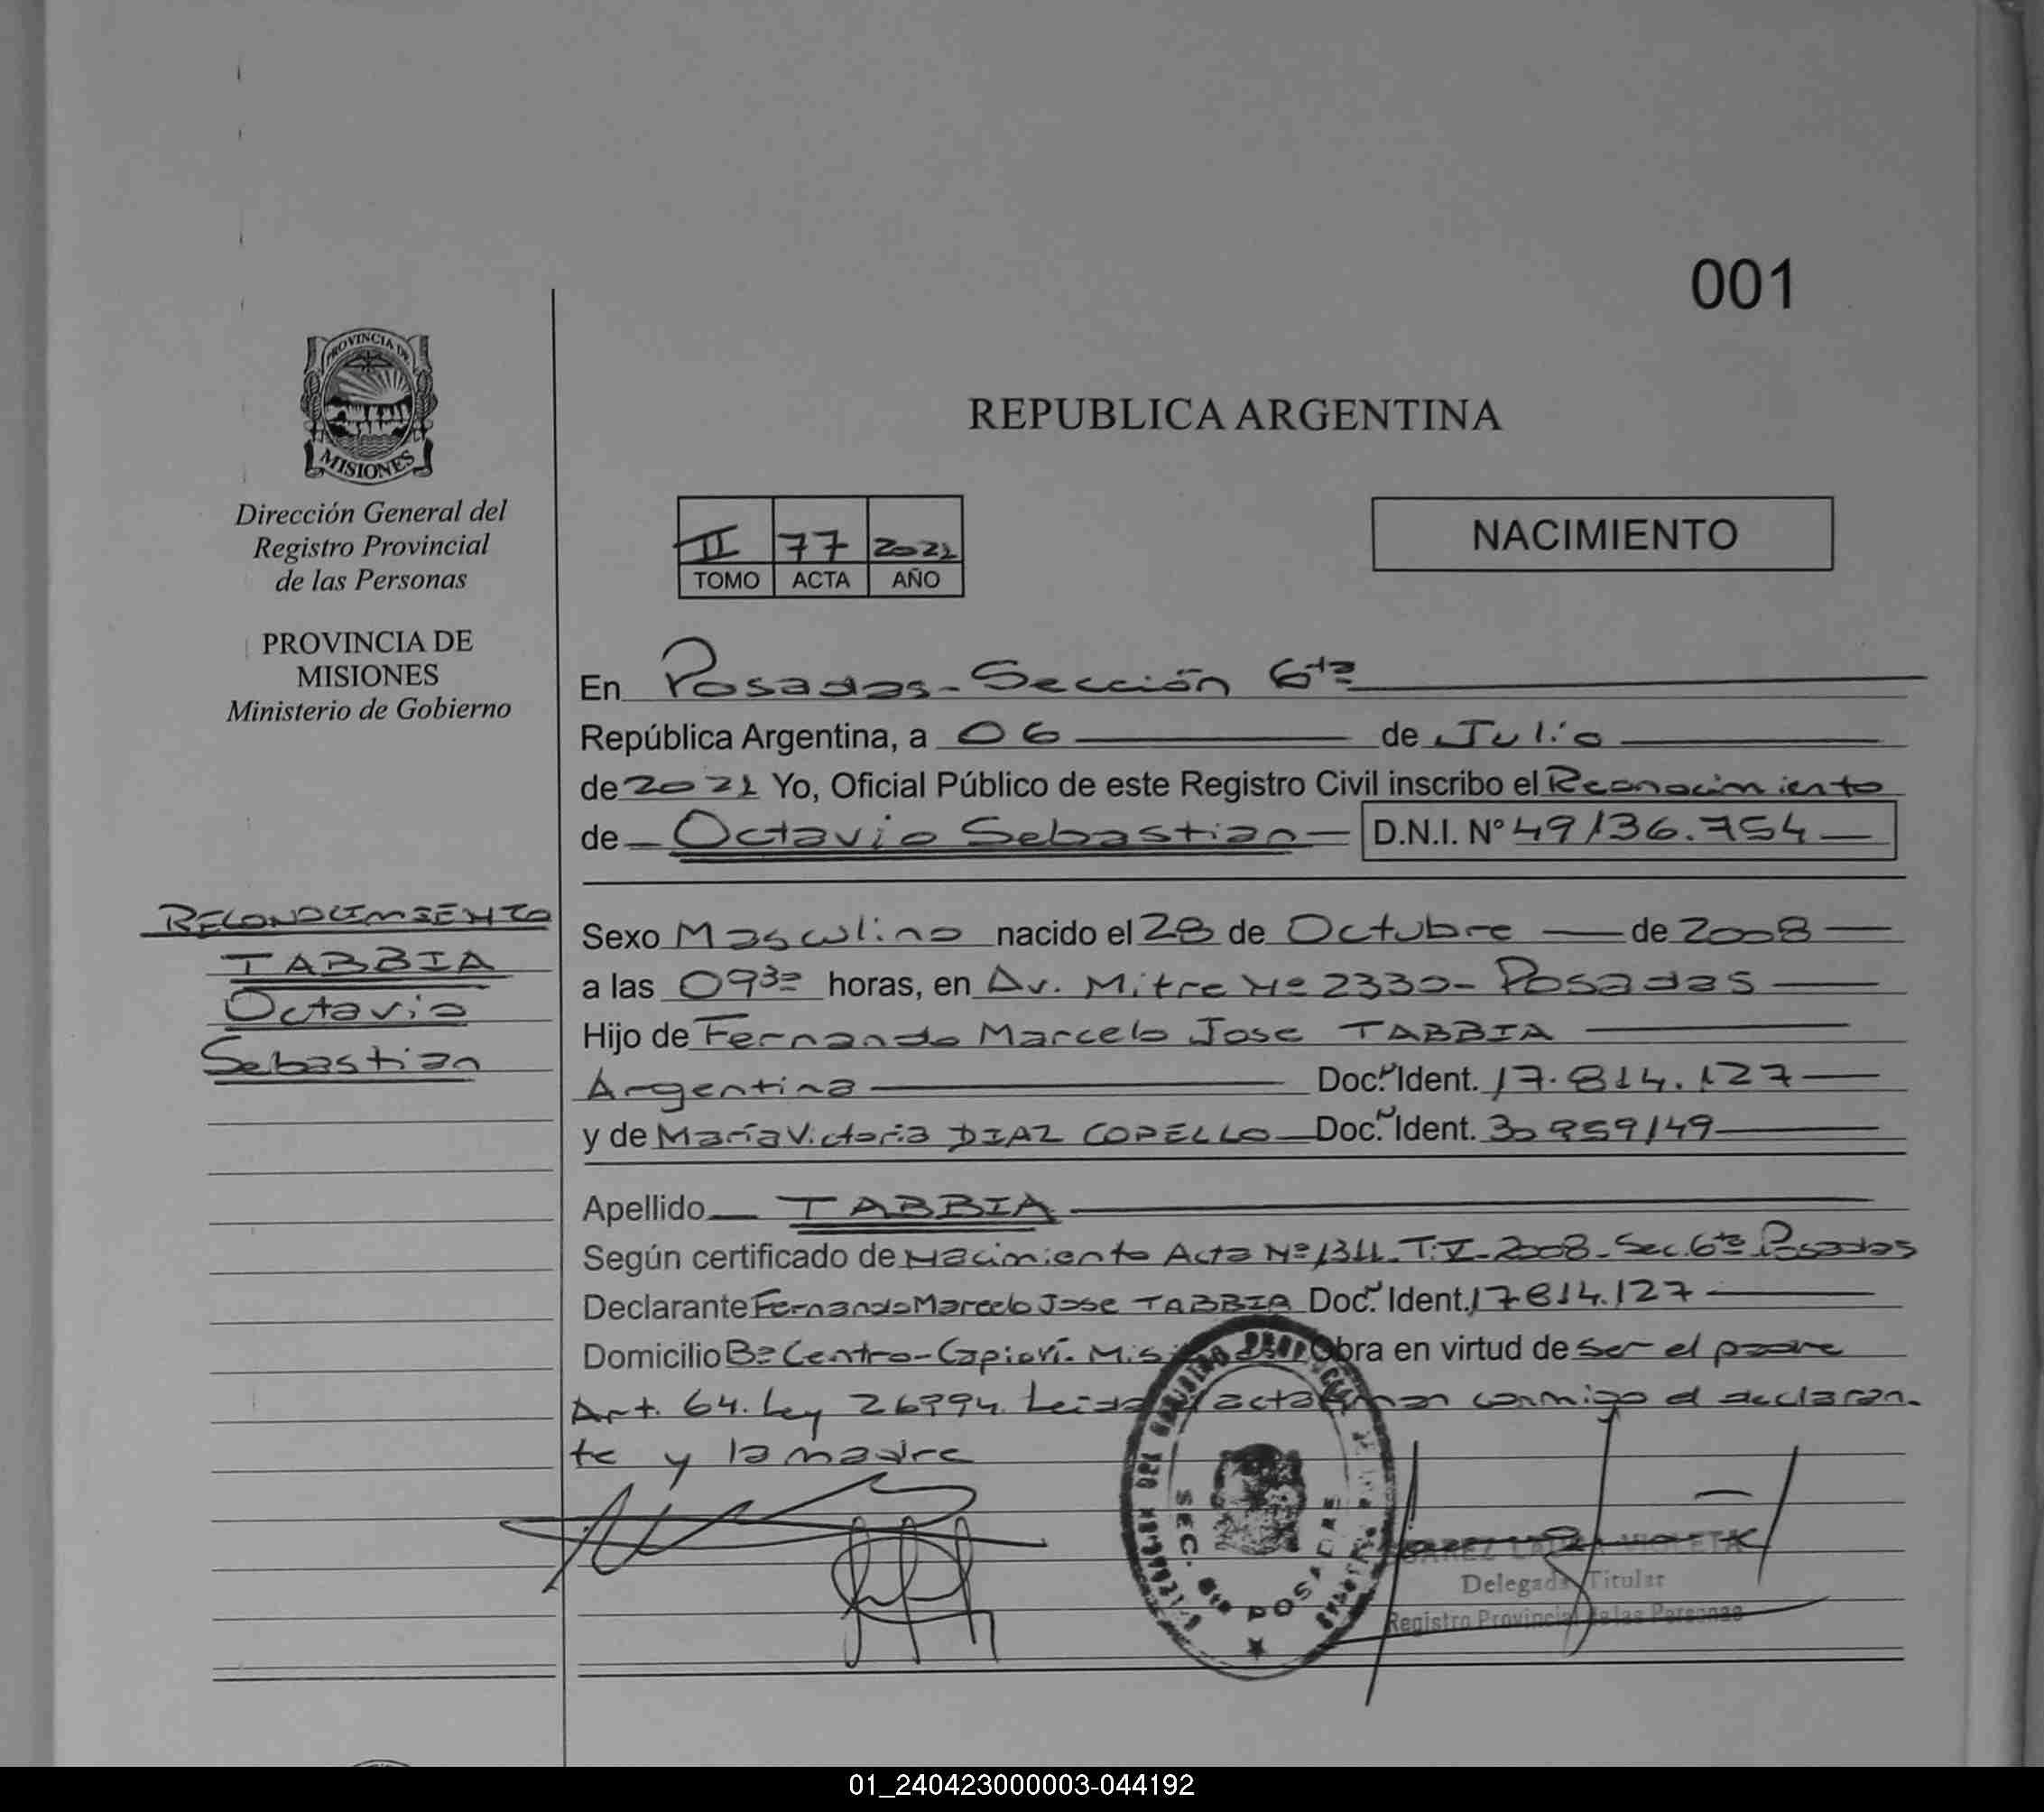 001
PROVINCIA DE
MISIONES
Dirección General del
Registro Provincial
de las Personas
PROVINCIA DE
MISIONES
Ministerio de Gobierno
REPUBLICA ARGENTINA
II 77 2021
TOMO ACTA AÑO
NACIMIENTO
En Posadas - Sección 6ta
República Argentina, a 06 de Julio
de 2021 Yo, Oficial Público de este Registro Civil inscribo el Reconocimiento
de Octavio Sebastian D.N.I. Nº 49136.754
RECONOCIMIENTO
TABBIA
Octavio
Sebastian
Sexo Masculino nacido el 28 de Octubre de 2008
a las 0930 horas, en Av. Mitre Nº 2330 - Posadas
Hijo de Fernando Marcelo Jose TABBIA
Argentina Doc. Ident. 17.814.127
y de María Victoria DIAZ COPELLO Doc. Ident. 30959149
Apellido TABBIA
Según certificado de Nacimiento Acta Nº 1311. T:V-2008-Sec.6ta Posadas
Declarante Fernando Marcelo Jose TABBIA Doc. Ident. 17814.127
Domicilio Bº Centro - Capioví. Obra en virtud de ser el padre
Art. 64. Ley 26994. Leida acta conmigo el declaran.
te y la madre
SEC. 6ta POSADAS
VIOLETA
Delegada Titular
Registro Provincial de las Personas
01_240423000003-044192